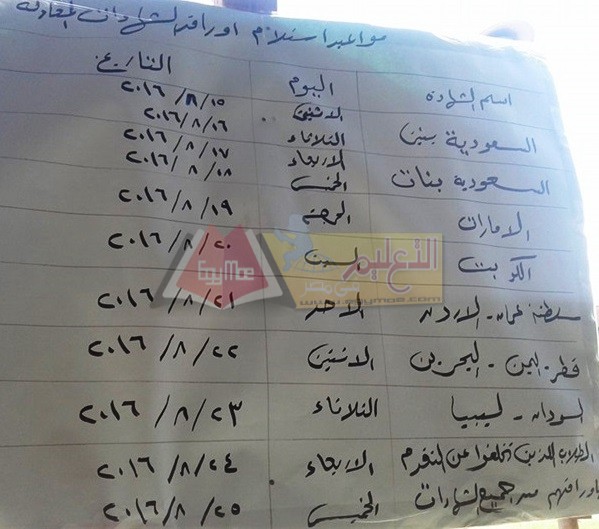 مواعيد استلام اوراق الشهادات المعادلة
اسم الشهادة اليوم التاريخ
السعودية بنين الاثنين ٢٠١٦/٨/١٥
الثلاثاء ٢٠١٦/٨/١٦
السعودية بنات الاربعاء ٢٠١٦/٨/١٧
الخميس ٢٠١٦/٨/١٨
الامارات الجمعة ٢٠١٦/٨/١٩
الكويت السبت ٢٠١٦/٨/٢٠
سلطنة عمان - الاردن الاحد ٢٠١٦/٨/٢١
قطر - اليمن - البحرين الاثنين ٢٠١٦/٨/٢٢
السودان - ليبيا الثلاثاء ٢٠١٦/٨/٢٣
الطلاب الذين تخلفوا عن التقدم الاربعاء ٢٠١٦/٨/٢٤
باوراقهم من جميع الشهادات الخميس ٢٠١٦/٨/٢٥
التعليم
فى مصر
www.egymoe.com
EgyMoe